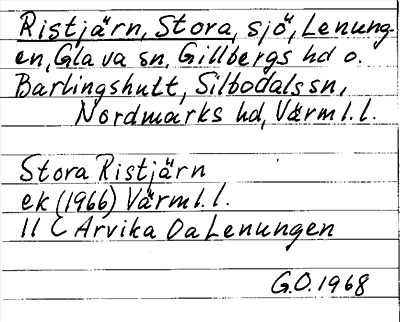 Ristjärn, Stora, sjö, Lenung-
en, Glava sn, Gillbergs hd o.
Barlingshult, Silbodals sn,
Nordmarks hd, Värml. l.
Stora Ristjärn
ek (1966) Värml. l.
11 C Arvika Oa Lenungen
G.O. 1968